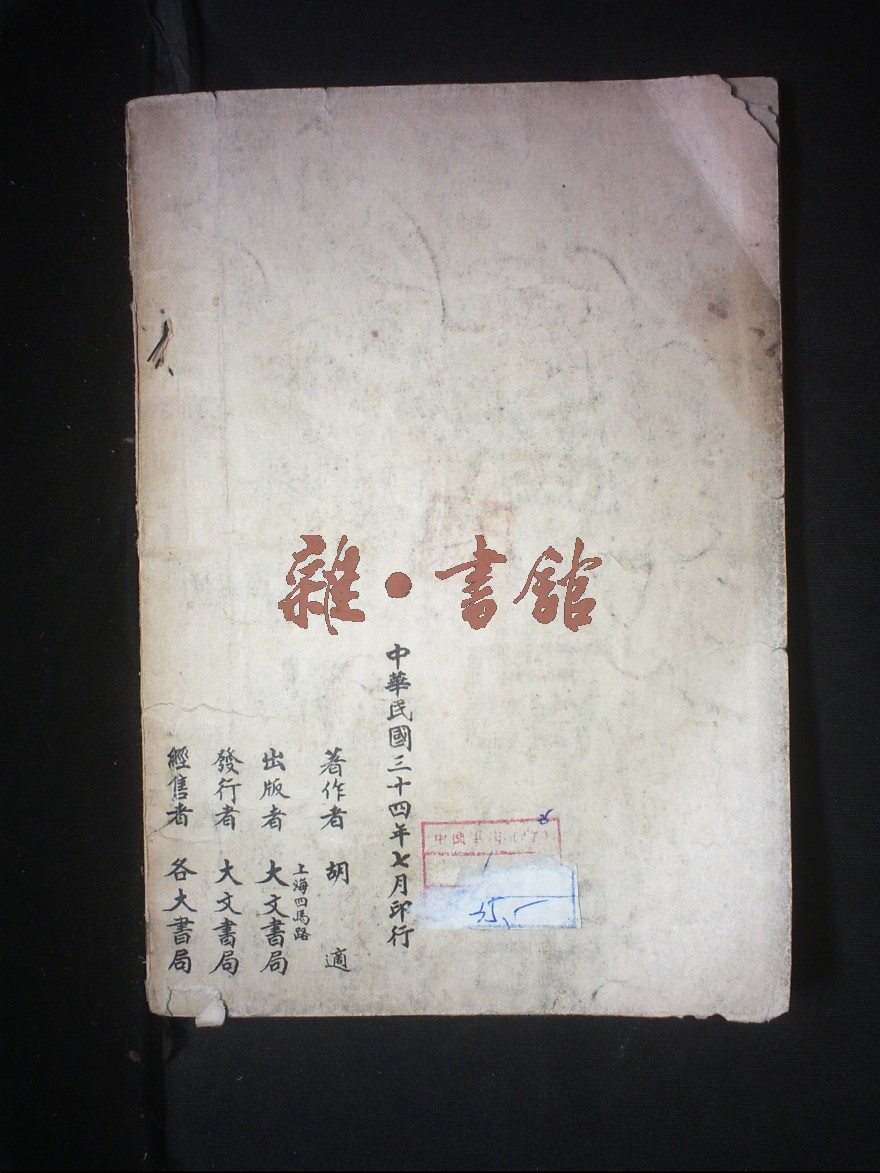 雜·書館
中華民國三十四年七月印行
著作者 胡適
上海四馬路
出版者 大文書局
發行者 大文書局
經售者 各大書局
35.